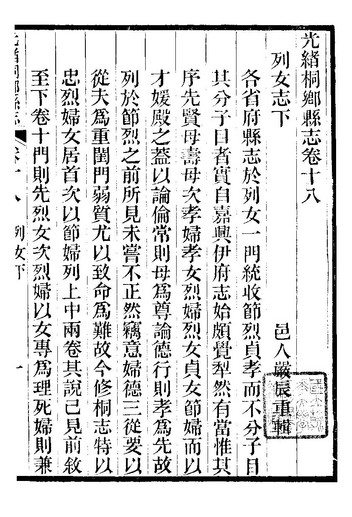 光緒桐鄉縣志卷十八
邑人嚴辰重輯
列女志下
各省府縣志於列女一門統收節烈貞孝而不分子目
其分子目者實自嘉興伊府志始頗覺犁然有當惟其
序先賢母壽母次孝婦孝女烈婦烈女貞女節婦而以
才媛殿之蓋以論倫常則母為尊論德行則孝為先故
列於節烈之前所見未嘗不正然竊意婦德三從要以
從夫為重閨門弱質尤以致命為難故今修桐志特以
忠烈婦女居首次以節婦列上中兩卷其說已見前敘
至下卷十門則先烈女次烈婦以女專為理死婦則兼
光緒桐鄉縣志
卷十八
列女下
一